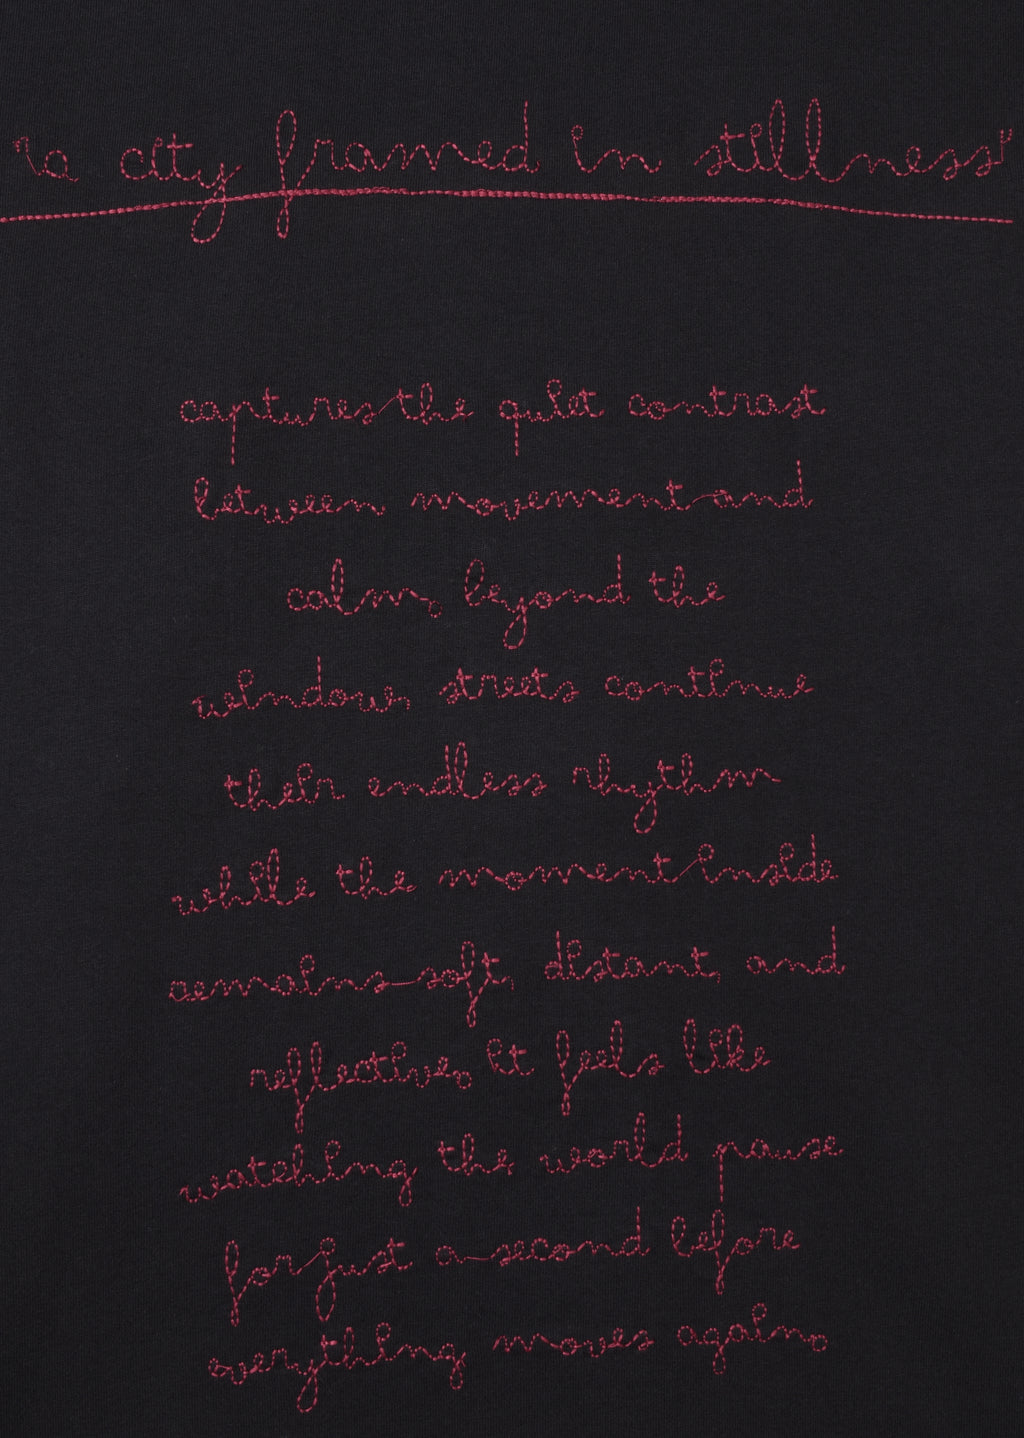 "a city framed in stillness"
captures the quiet contrast
between movement and
calm, beyond the
window, streets continue
their endless rhythm
while the moment inside
remains soft, distant, and
reflective. it feels like
watching the world pause
for just a second before
everything moves again.